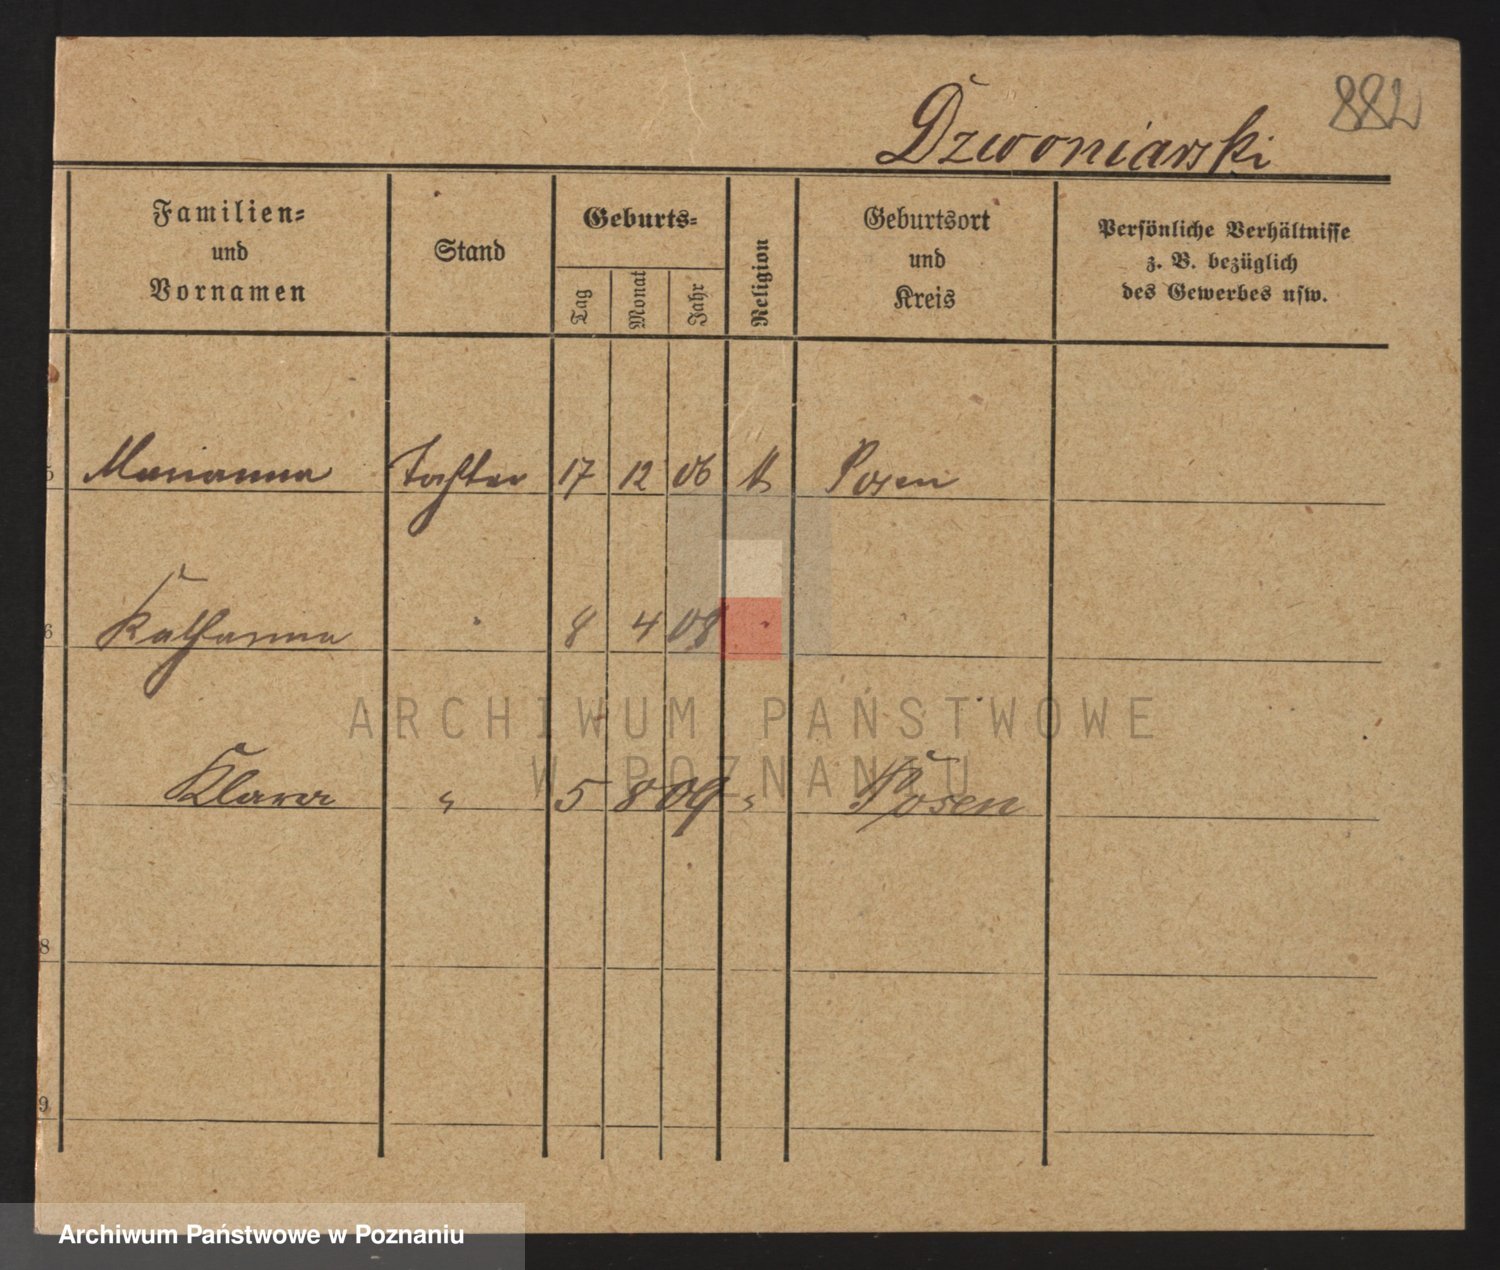 882
Dzwoniarski
Familien=
und
Vornamen
Stand
Geburts=
Tag
Monat
Jahr
Religion
Geburtsort
und
Kreis
Persönliche Verhältnisse
z. B. bezüglich
des Gewerbes usw.
5 Marianna Tochter 17 12 06 k Posen
6 Katharina " 8 4 08 "
Klara " 5 8 09 " Posen
8
9
ARCHIWUM PAŃSTWOWE
W POZNANIU
Archiwum Państwowe w Poznaniu